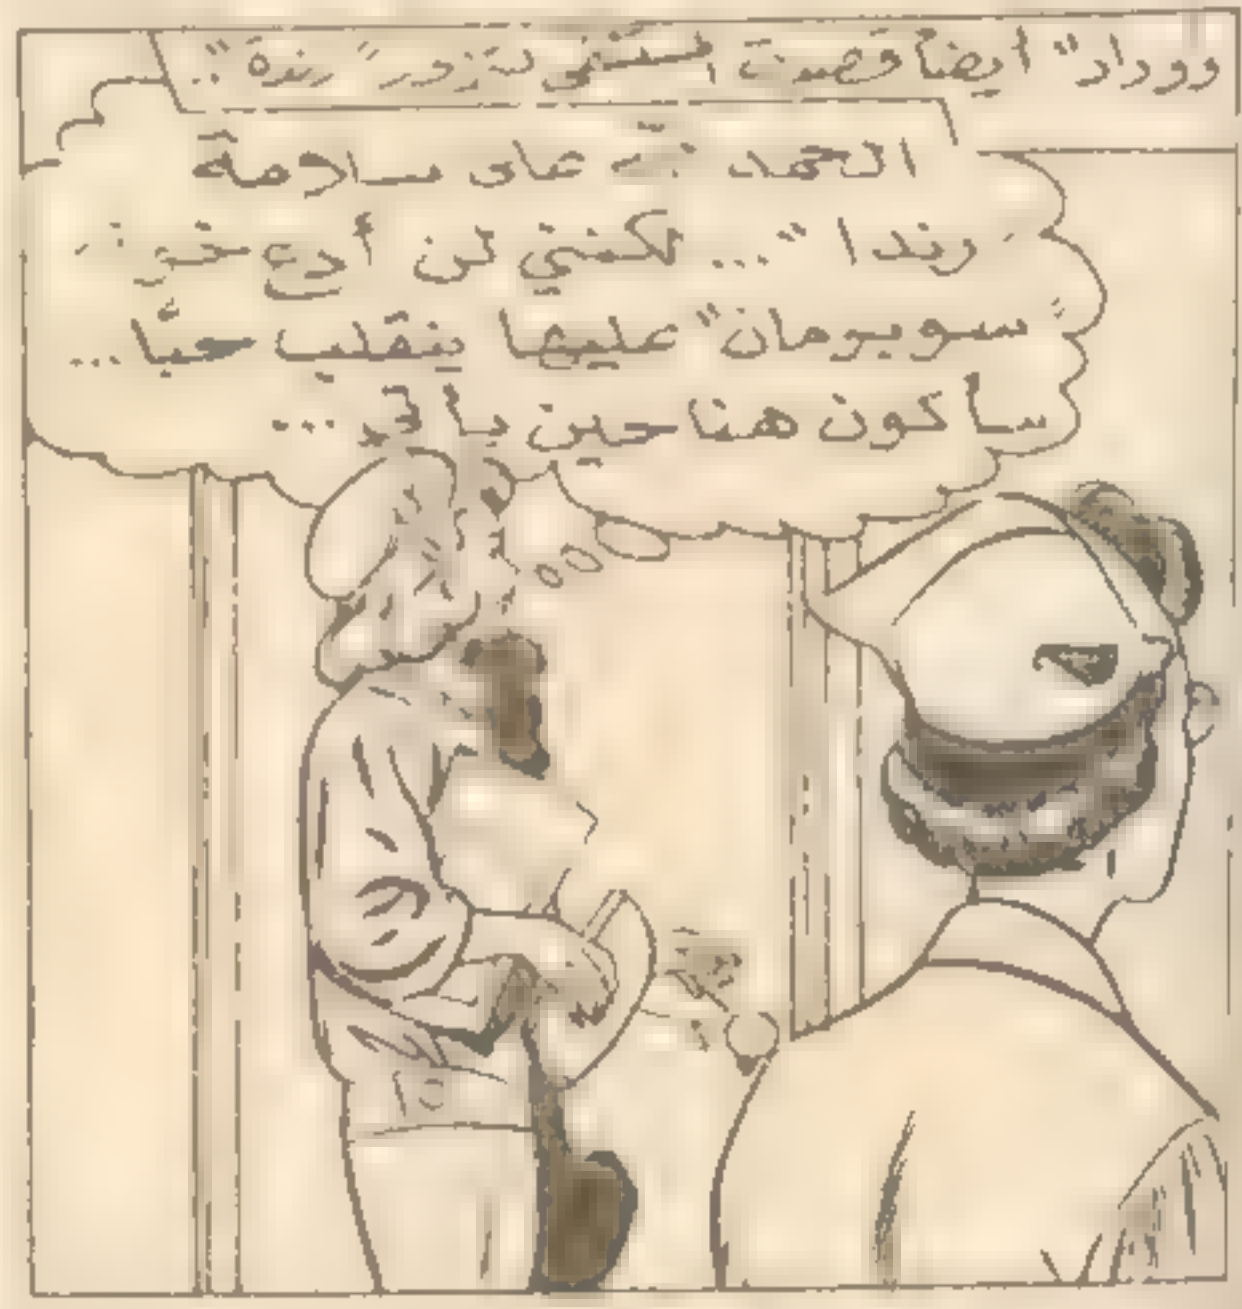 و"وداد" ايضاً قصدت المستشفى لتزور "رندة"..
الحمد لله على سلامة
"رندا"... لكنني لن أدع خوف
"سوبرمان" عليها ينقلب حبّاً...
سأكون هنا حين يأتي...